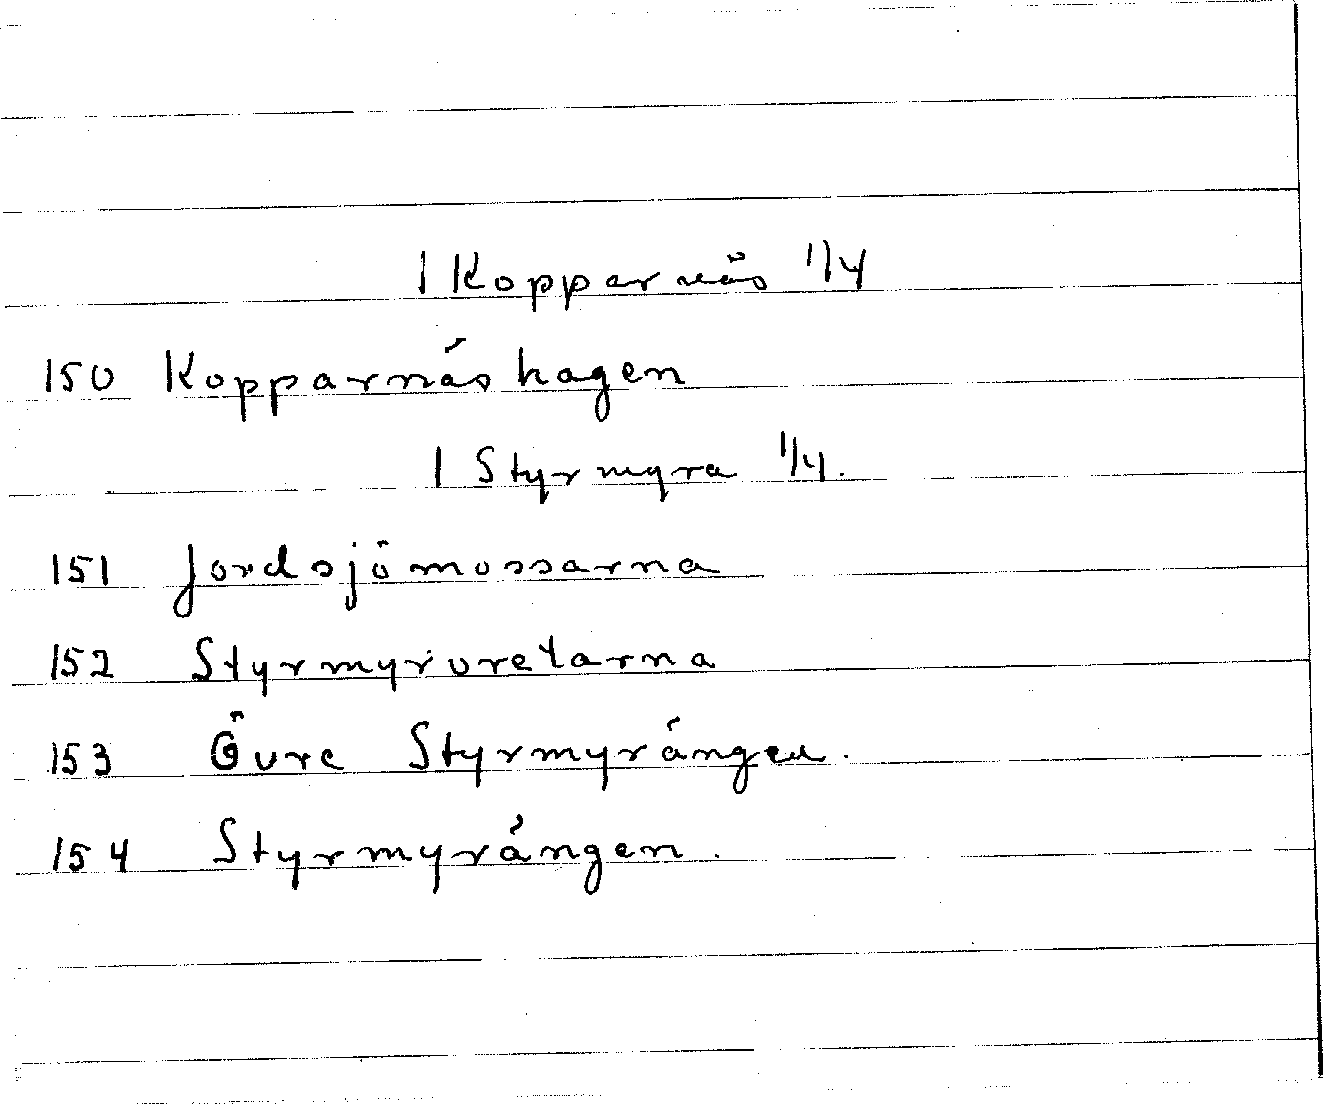 1 Kopparnäs 1/4
150 Kopparnäshagen
1 Styrmyra 1/4.
151 Jordsjömossarna
152 Styrmyruretarna
153 Övre Styrmyrängen.
154 Styrmyrängen.